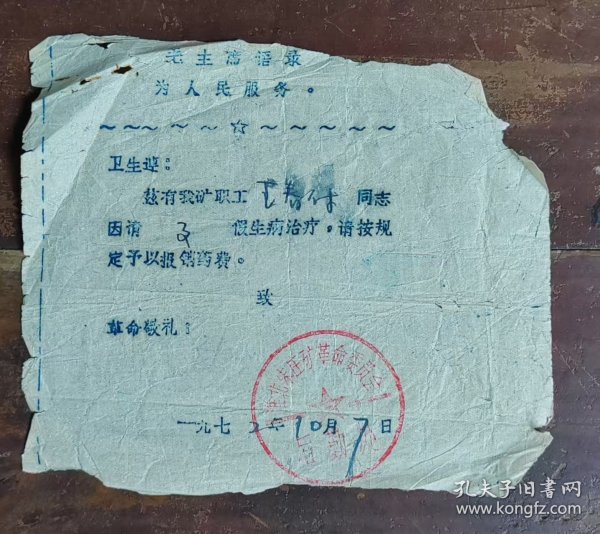 毛主席语录
为人民服务。
～～～～～☆～～～～～～
卫生逆：
兹有我矿职工 同志
因请 假生病治疗。请按规
定予以报销药费。
致
革命敬礼！
矿革命委员会
一九七 年10月7日
孔夫子旧书网
www.kongfz.com